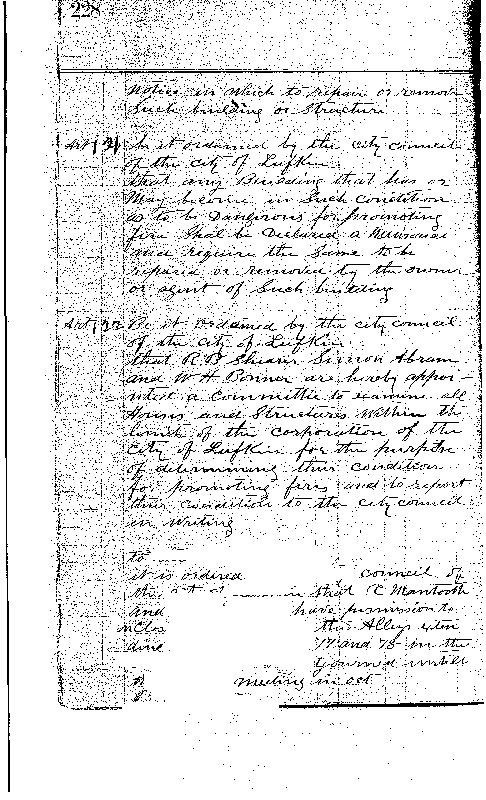 228
notice in which to repair or remove
Such building or Structure
Art 21 be it ordained by the city council
of the city of Lufkin
that any Building that has or
May become in Such Condition
as to be Dangerous for promoting
fire Shal be Declared a Nuisance
and require the Same to be
repaired or removed by the owner
or agent of Such building
Art 22 Be it ordained by the city council
of the city of Lufkin
that R B Shearer Simon Abram
and W H Bonner are hereby appoi-
nted a Committee to examine all
Houses and Structures Within the
limit of the corporation of the
City of Lufkin for the purpose
of determining their condition
for promoting fires and to report
their condition to the city council
in writing
to
it is ordered council of
the in that C Mantooth
and have permission to
the Alley
17 and 78 in the
until
meeting in oct